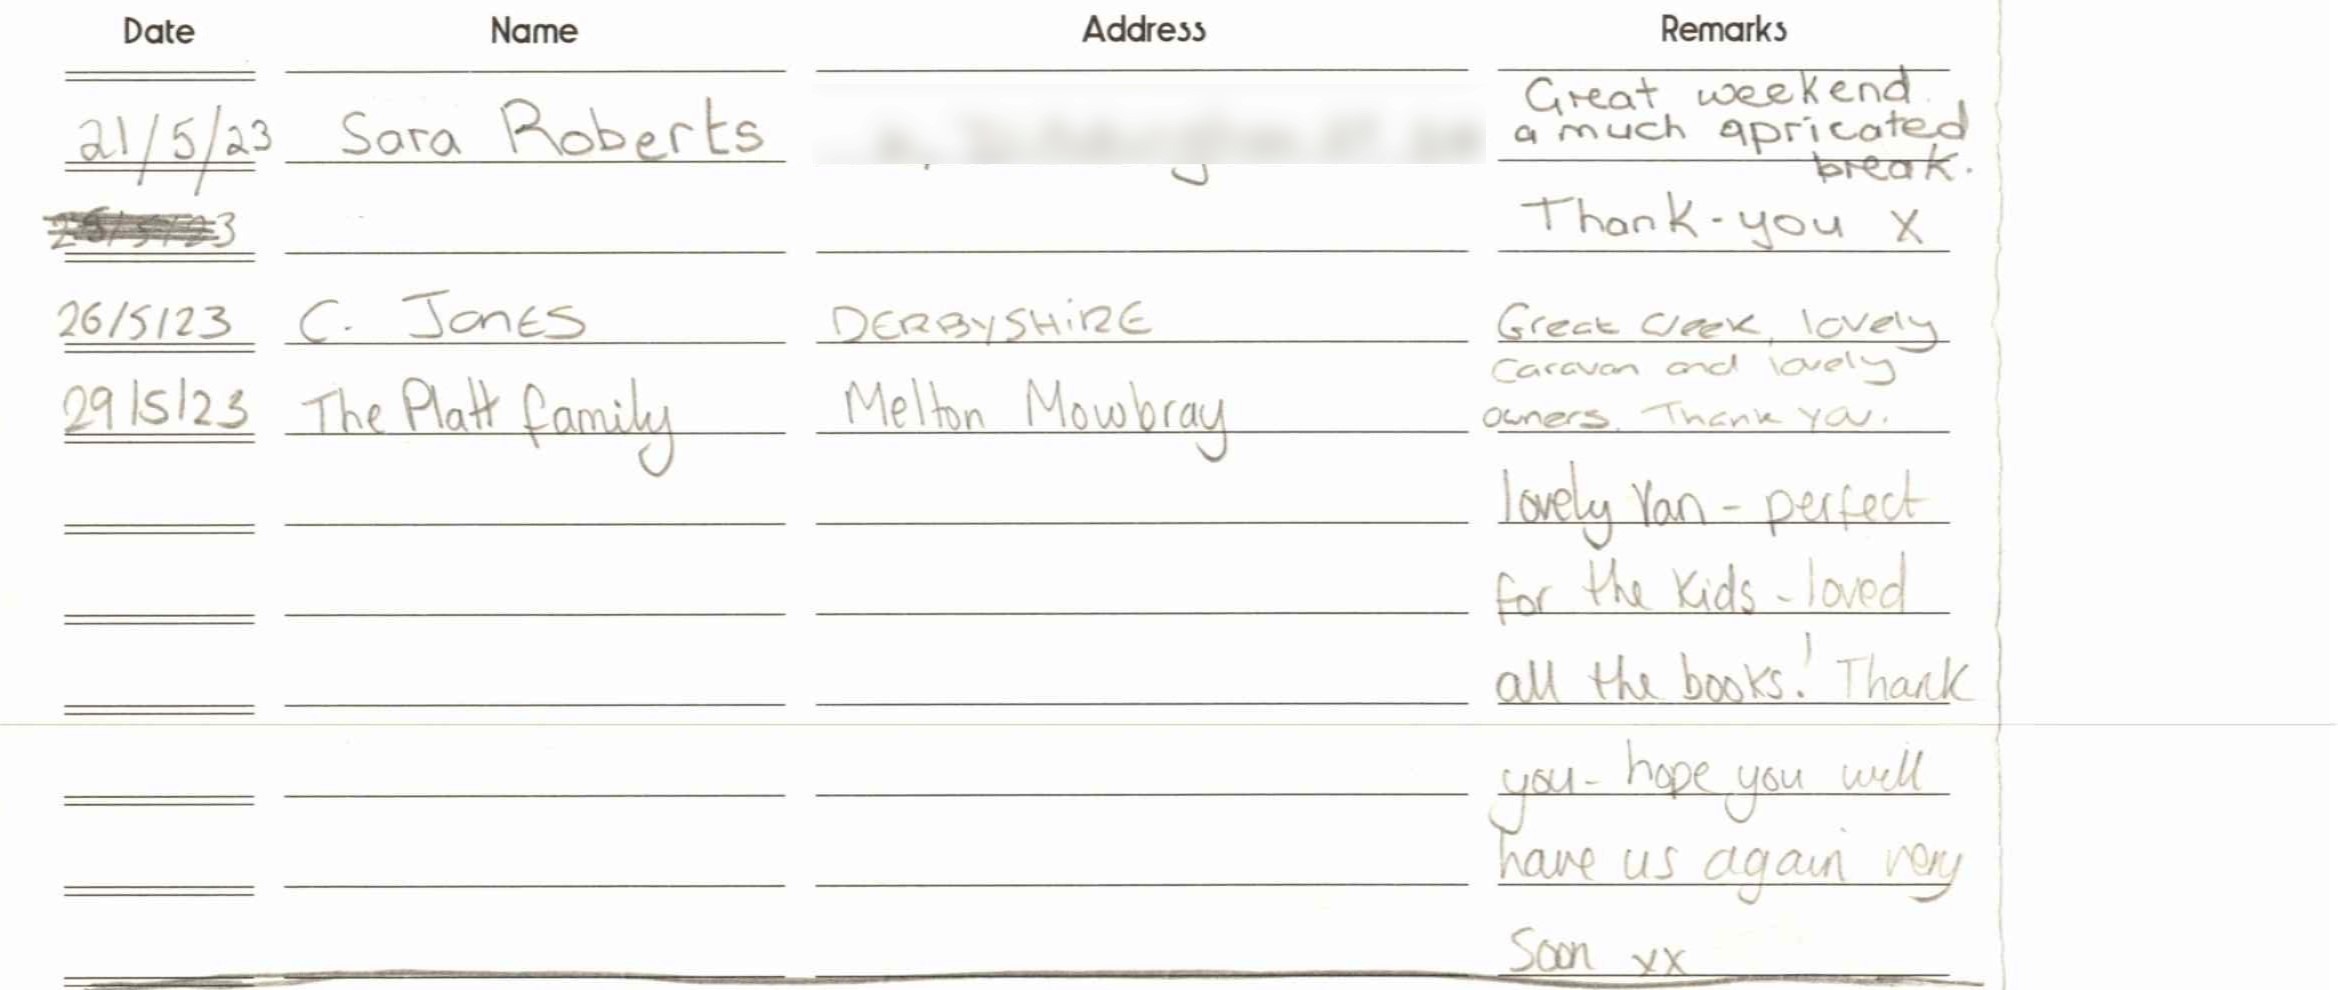 Date Name Address Remarks
21/5/23 Sara Roberts Great weekend
a much apricated
break.
Thank-you X
26/5/23 C. JonES DERBYSHiRE Great week, lovely
Caravan and lovely
29/5/23 The Platt family Melton Mowbray owners. Thank you.
lovely Van - perfect
for the kids - loved
all the books! Thank
you - hope you will
have us again very
Soon xx